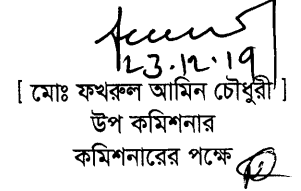 23.12.19
[ মোঃ ফখরুল আমিন চৌধুরী ]
উপ কমিশনার
কমিশনারের পক্ষে